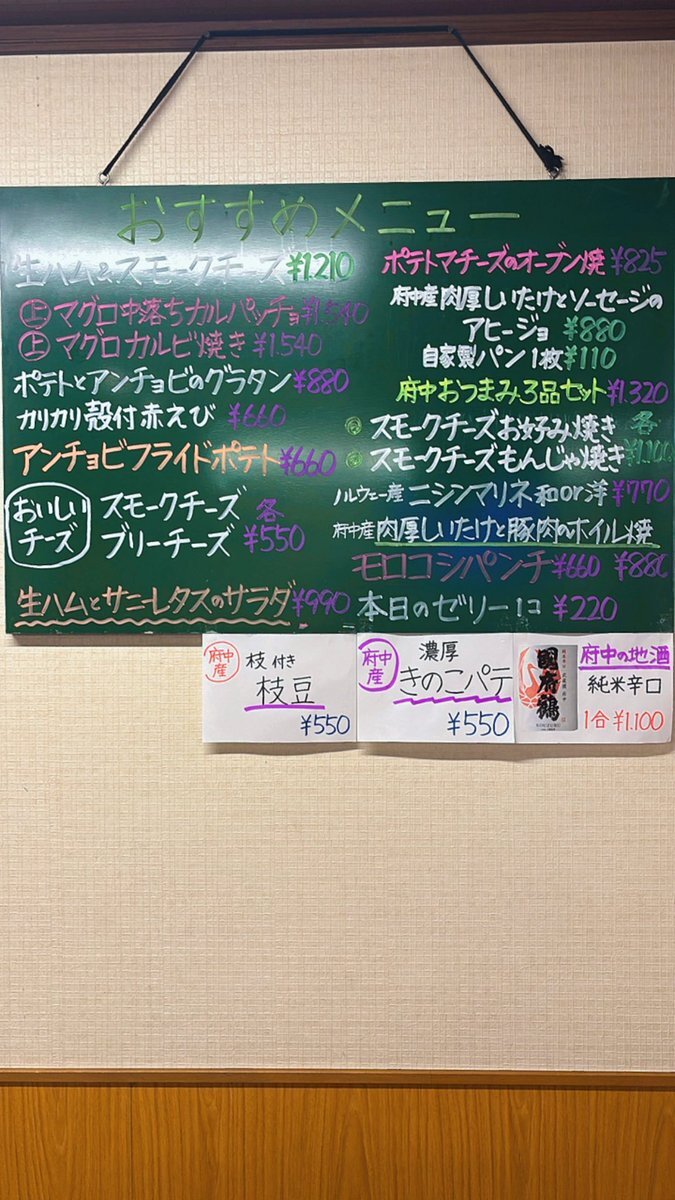 おすすめメニュー
生ハム&スモークチーズ ¥1210
上 マグロ中落ちカルパッチョ ¥1.540
上 マグロカルビ焼き ¥1.540
ポテトとアンチョビのグラタン ¥880
カリカリ殻付赤えび ¥660
アンチョビフライドポテト ¥660
おいしいチーズ
スモークチーズ 各
ブリーチーズ ¥550
生ハムとサニーレタスのサラダ ¥990
ポテトマチーズのオーブン焼 ¥825
府中産肉厚しいたけとソーセージの
アヒージョ ¥880
自家製パン1枚 ¥110
府中おつまみ3品セット ¥1.320
スモークチーズお好み焼き 各
スモークチーズもんじゃ焼き ¥1.100
ノルウェー産ニシンマリネ和or洋 ¥770
府中産肉厚しいたけと豚肉のホイル焼
¥880
モロコシパンチ ¥660
本日のゼリー1コ ¥220
府中産
枝付き
枝豆
¥550
府中産
濃厚
きのこパテ
¥550
國府鶴
府中の地酒
純米辛口
1合 ¥1.100